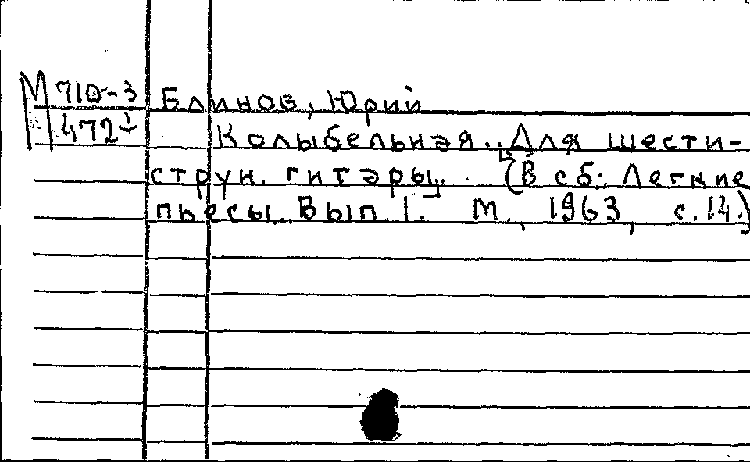 М 710-3
472
Блинов, Юрий
Колыбельная. Для шести-
струн. гитары. (В сб: Легкие
пьесы. Вып I. М., 1963, с. 14.)